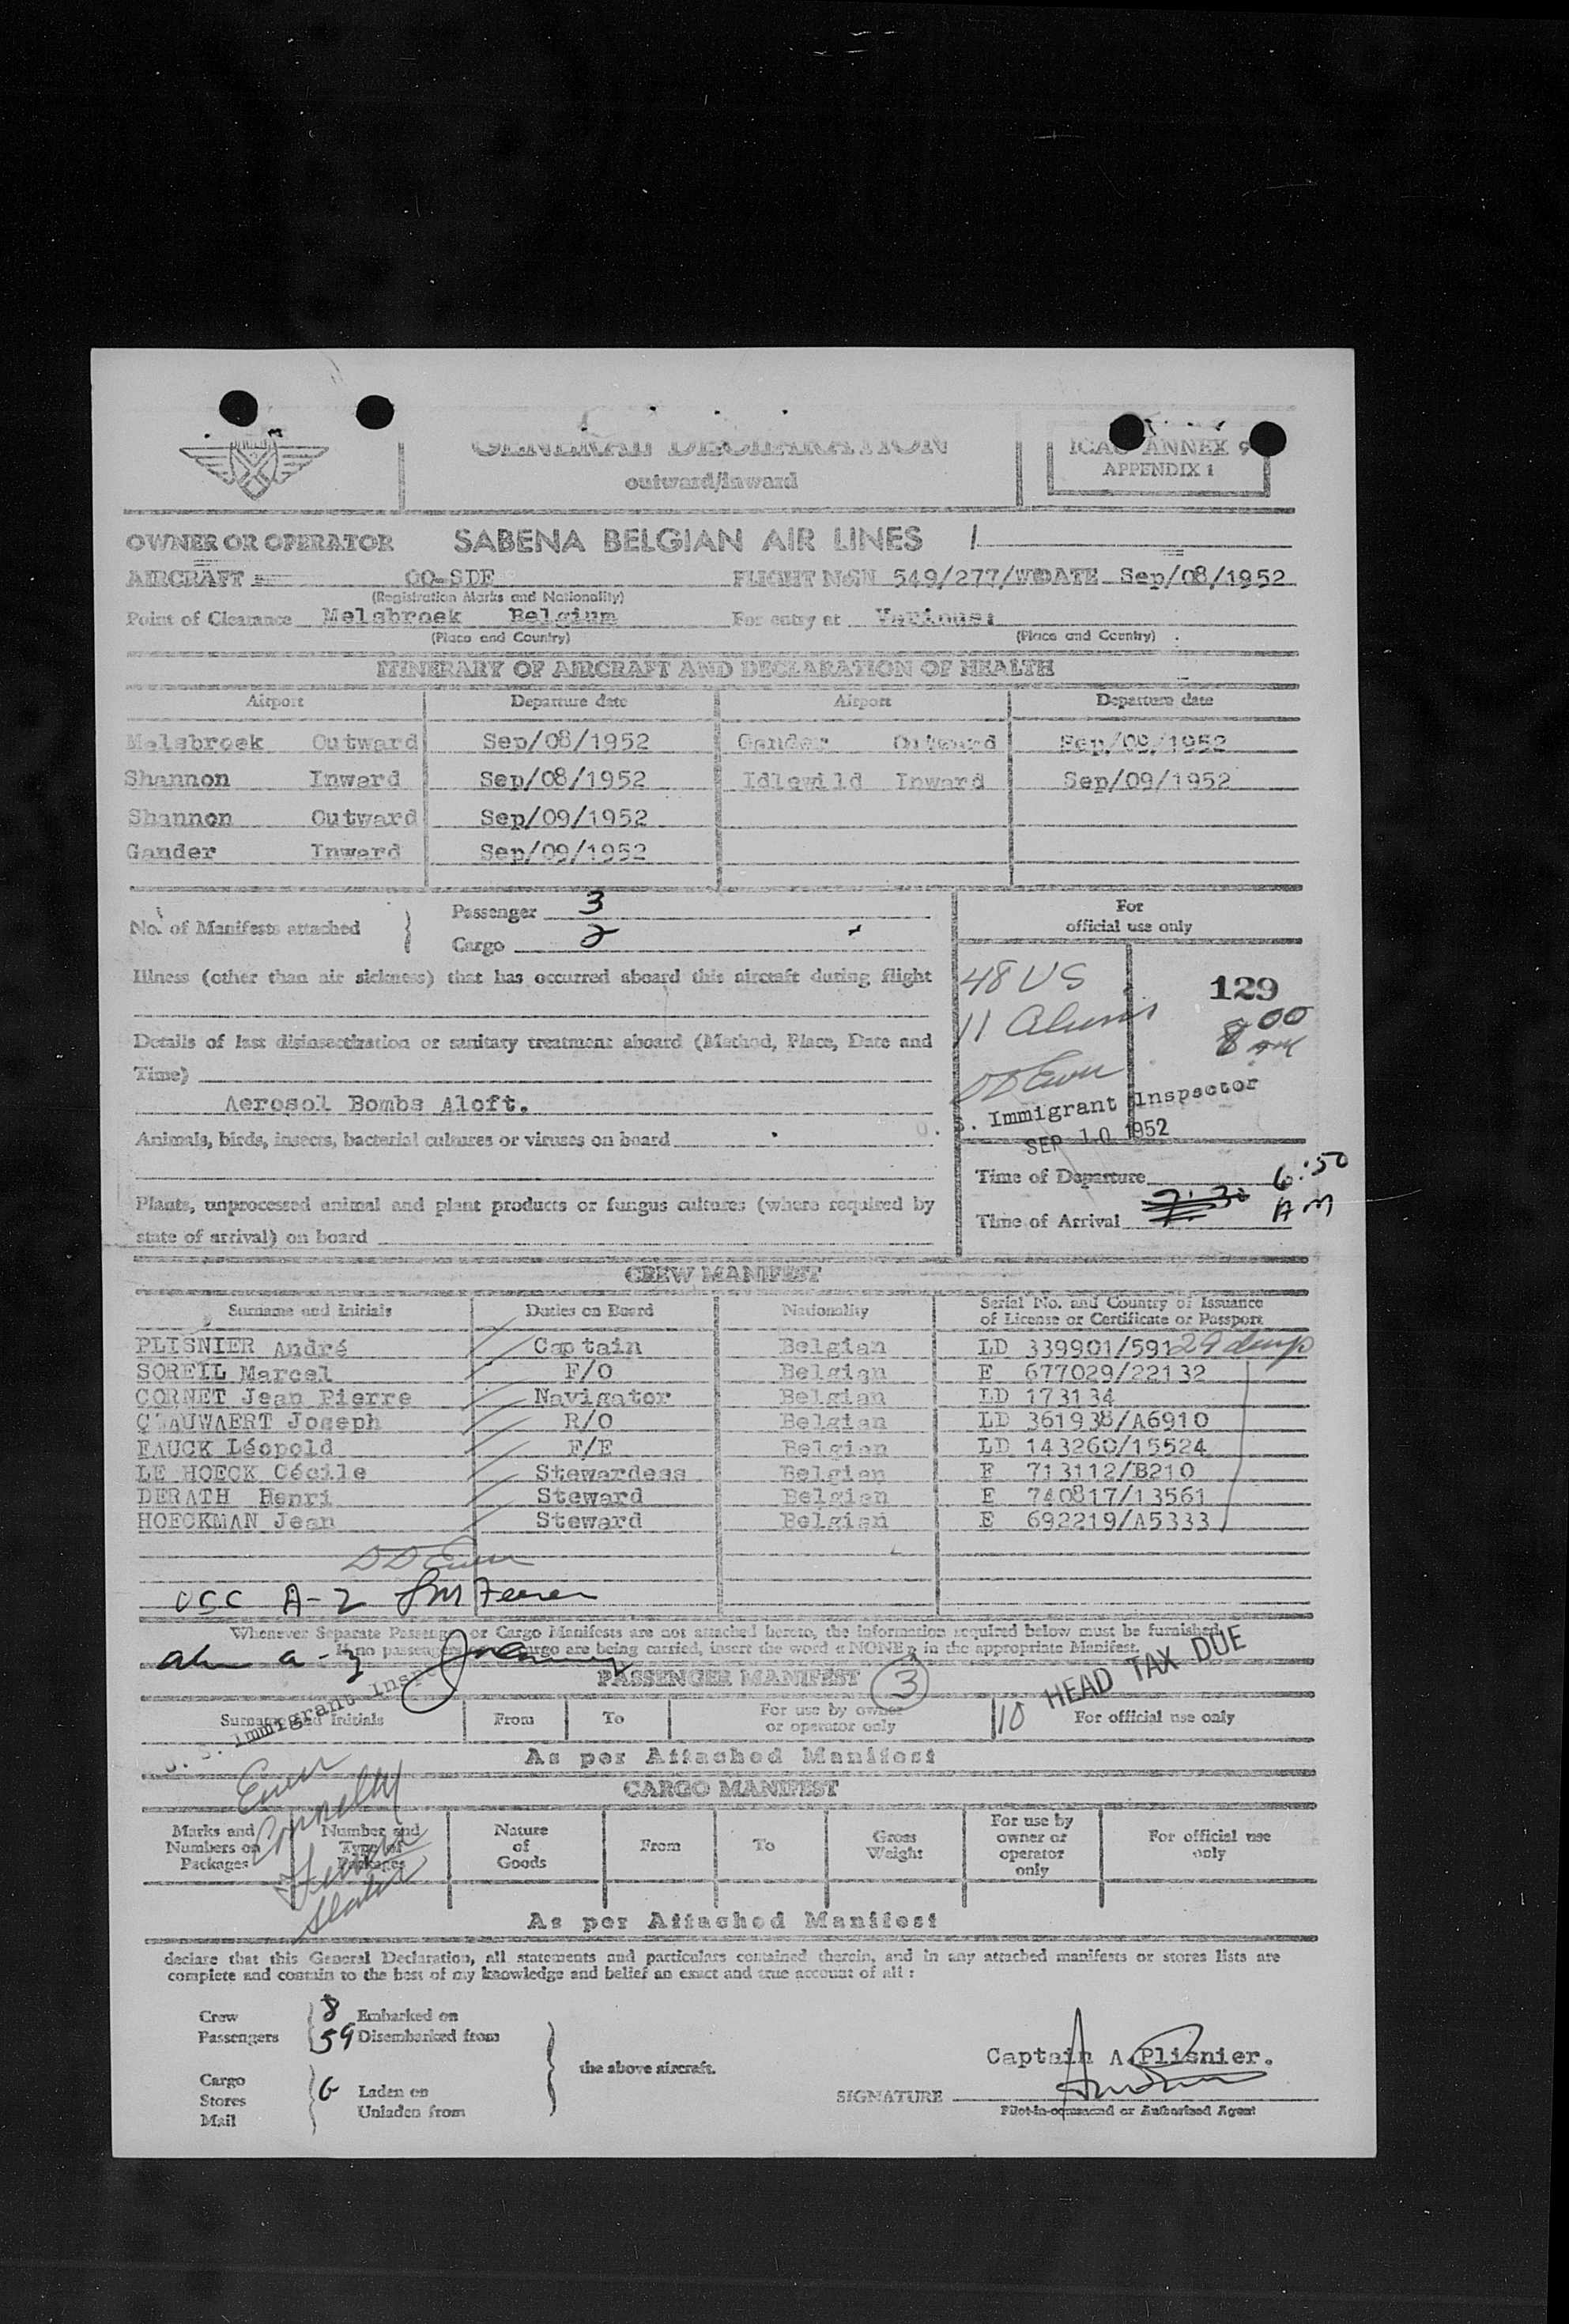 GENERAL DECLARATION
outward/inward
ICAO ANNEX 9
APPENDIX 1
OWNER OR OPERATOR SABENA BELGIAN AIR LINES 1
AIRCRAFT OO-SDF FLIGHT No SN 549/277/W DATE Sep/08/1952
(Registration Marks and Nationality)
Point of Clearance Melsbroek Belgium For entry at Various:
(Place and Country) (Place and Country)
ITINERARY OF AIRCRAFT AND DECLARATION OF HEALTH
Airport Departure date Airport Departure date
Melsbroek Outward Sep/08/1952 Gander Outward Sep/09/1952
Shannon Inward Sep/08/1952 Idlewild Inward Sep/09/1952
Shannon Outward Sep/09/1952
Gander Inward Sep/09/1952
No. of Manifests attached
Passenger 3
Cargo 2
For
official use only
Illness (other than air sickness) that has occurred aboard this aircraft during flight
48 US
11 Aliens
129
8 00
AM
Details of last disinsectization or sanitary treatment aboard (Method, Place, Date and
Time)
Aerosol Bombs Aloft.
DD Ewen
U. S. Immigrant Inspector
SEP 10 1952
Animals, birds, insects, bacterial cultures or viruses on board
Plants, unprocessed animal and plant products or fungus cultures (where required by
state of arrival) on board
Time of Departure
Time of Arrival 7:30 6:50
AM
CREW MANIFEST
Surname and initials Duties on Board Nationality Serial No. and Country of Issuance
of License or Certificate or Passport
PLISNIER André Captain Belgian LD 339901/591 29 days
SOREIL Marcel F/O Belgian E 677029/22132
CORNET Jean Pierre Navigator Belgian LD 173134
CLAUWAERT Joseph R/O Belgian LD 361938/A6910
FAUCK Léopold F/E Belgian LD 143260/15524
LE HOECK Cécile Stewardess Belgian E 713112/B210
DERATH Henri Steward Belgian E 740817/13561
HOECKMAN Jean Steward Belgian E 692219/A5333
DD Ewen
USC A-2
Whenever Separate Passenger or Cargo Manifests are not attached hereto, the information required below must be furnished.
If no passengers or cargo are being carried, insert the word « NONE » in the appropriate Manifest.
a - 3
U. S. Immigrant Insp
PASSENGER MANIFEST 3
10 HEAD TAX DUE
Surname and initials From To For use by owner
or operator only For official use only
As per Attached Manifest
Ewen
Connelly
CARGO MANIFEST
Marks and
Numbers on
Packages
Number and
Type of
Packages
Nature
of
Goods
From To Gross
Weight
For use by
owner or
operator
only
For official use
only
As per Attached Manifest
declare that this General Declaration, all statements and particulars contained therein, and in any attached manifests or stores lists are
complete and contain to the best of my knowledge and belief an exact and true account of all :
Crew 8 Embarked on
Passengers 59 Disembarked from
the above aircraft.
Cargo
Stores Laden on
Mail Unladen from
Captain A.Plisnier.
SIGNATURE
Pilot-in-command or Authorised Agent